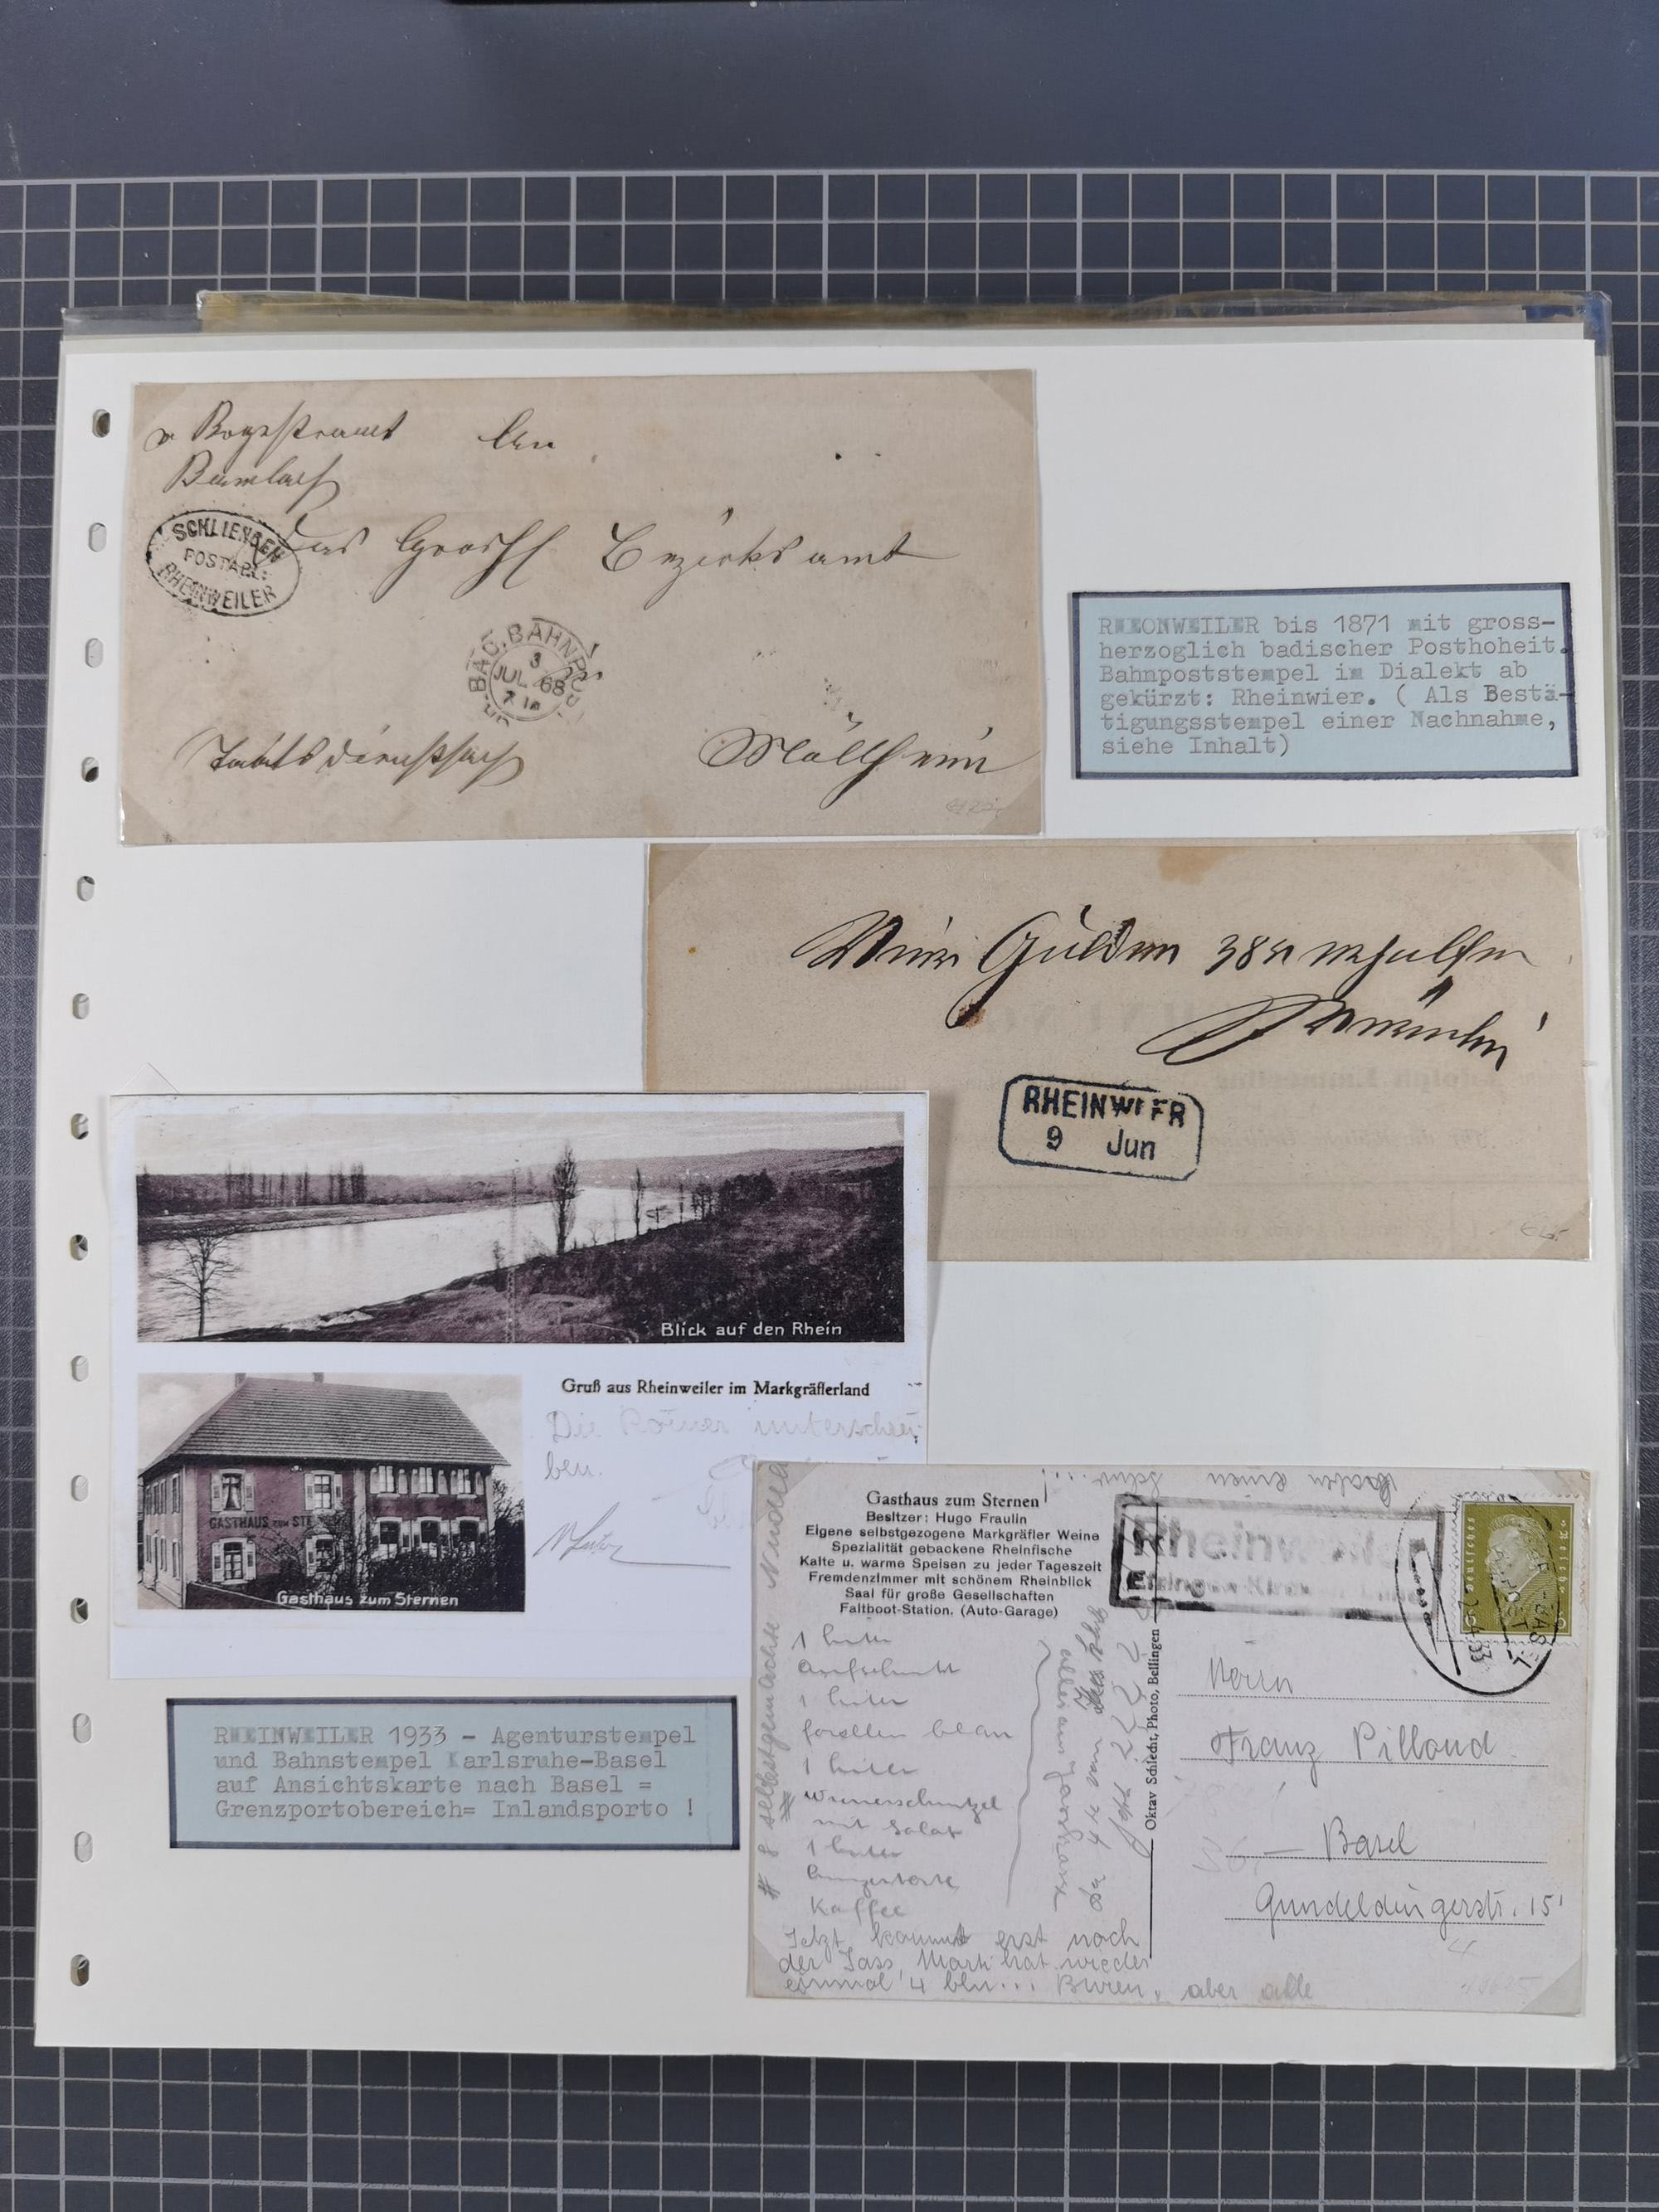 An
SCHLIENGEN
POSTABL:
RHEINWEILER
das Grossh Bezirksamt
BAD. BAHNPOST
3
JUL 68
Müllheim
RHEINWEILER bis 1871 mit gross-
herzoglich badischer Posthoheit.
Bahnpoststempel im Dialekt ab
gekürzt: Rheinwier. ( Als Bestä-
tigungsstempel einer Nachnahme,
siehe Inhalt)
Gulden 38 erhalten
RHEINWIER
9 Jun
Blick auf den Rhein
Gruß aus Rheinweiler im Markgräflerland
Die Römer unterschrei-
ben.
GASTHAUS ZUM STE
Gasthaus zum Sternen
RHEINWEILER 1933 - Agenturstempel
und Bahnstempel Karlsruhe-Basel
auf Ansichtskarte nach Basel =
Grenzportobereich= Inlandsporto !
Gasthaus zum Sternen
Besitzer: Hugo Fraulin
Eigene selbstgezogene Markgräfler Weine
Spezialität gebackene Rheinfische
Kalte u. warme Speisen zu jeder Tageszeit
Fremdenzimmer mit schönem Rheinblick
Saal für große Gesellschaften
Faltboot-Station. (Auto-Garage)
Rheinweiler
Deutsches Reich
1
1
forellen blau
1
Wienerschnitzel
mit Salat
1
Kaffee
Jetzt kommt erst noch
der Jass, Marti hat wieder
einmal 4 Buren, aber alle
8 selbstgemachte Nudeln
Oktav Schlecht, Photo, Bellingen
Herrn
Franz Pilloud
Basel
Gundeldingerstr. 15